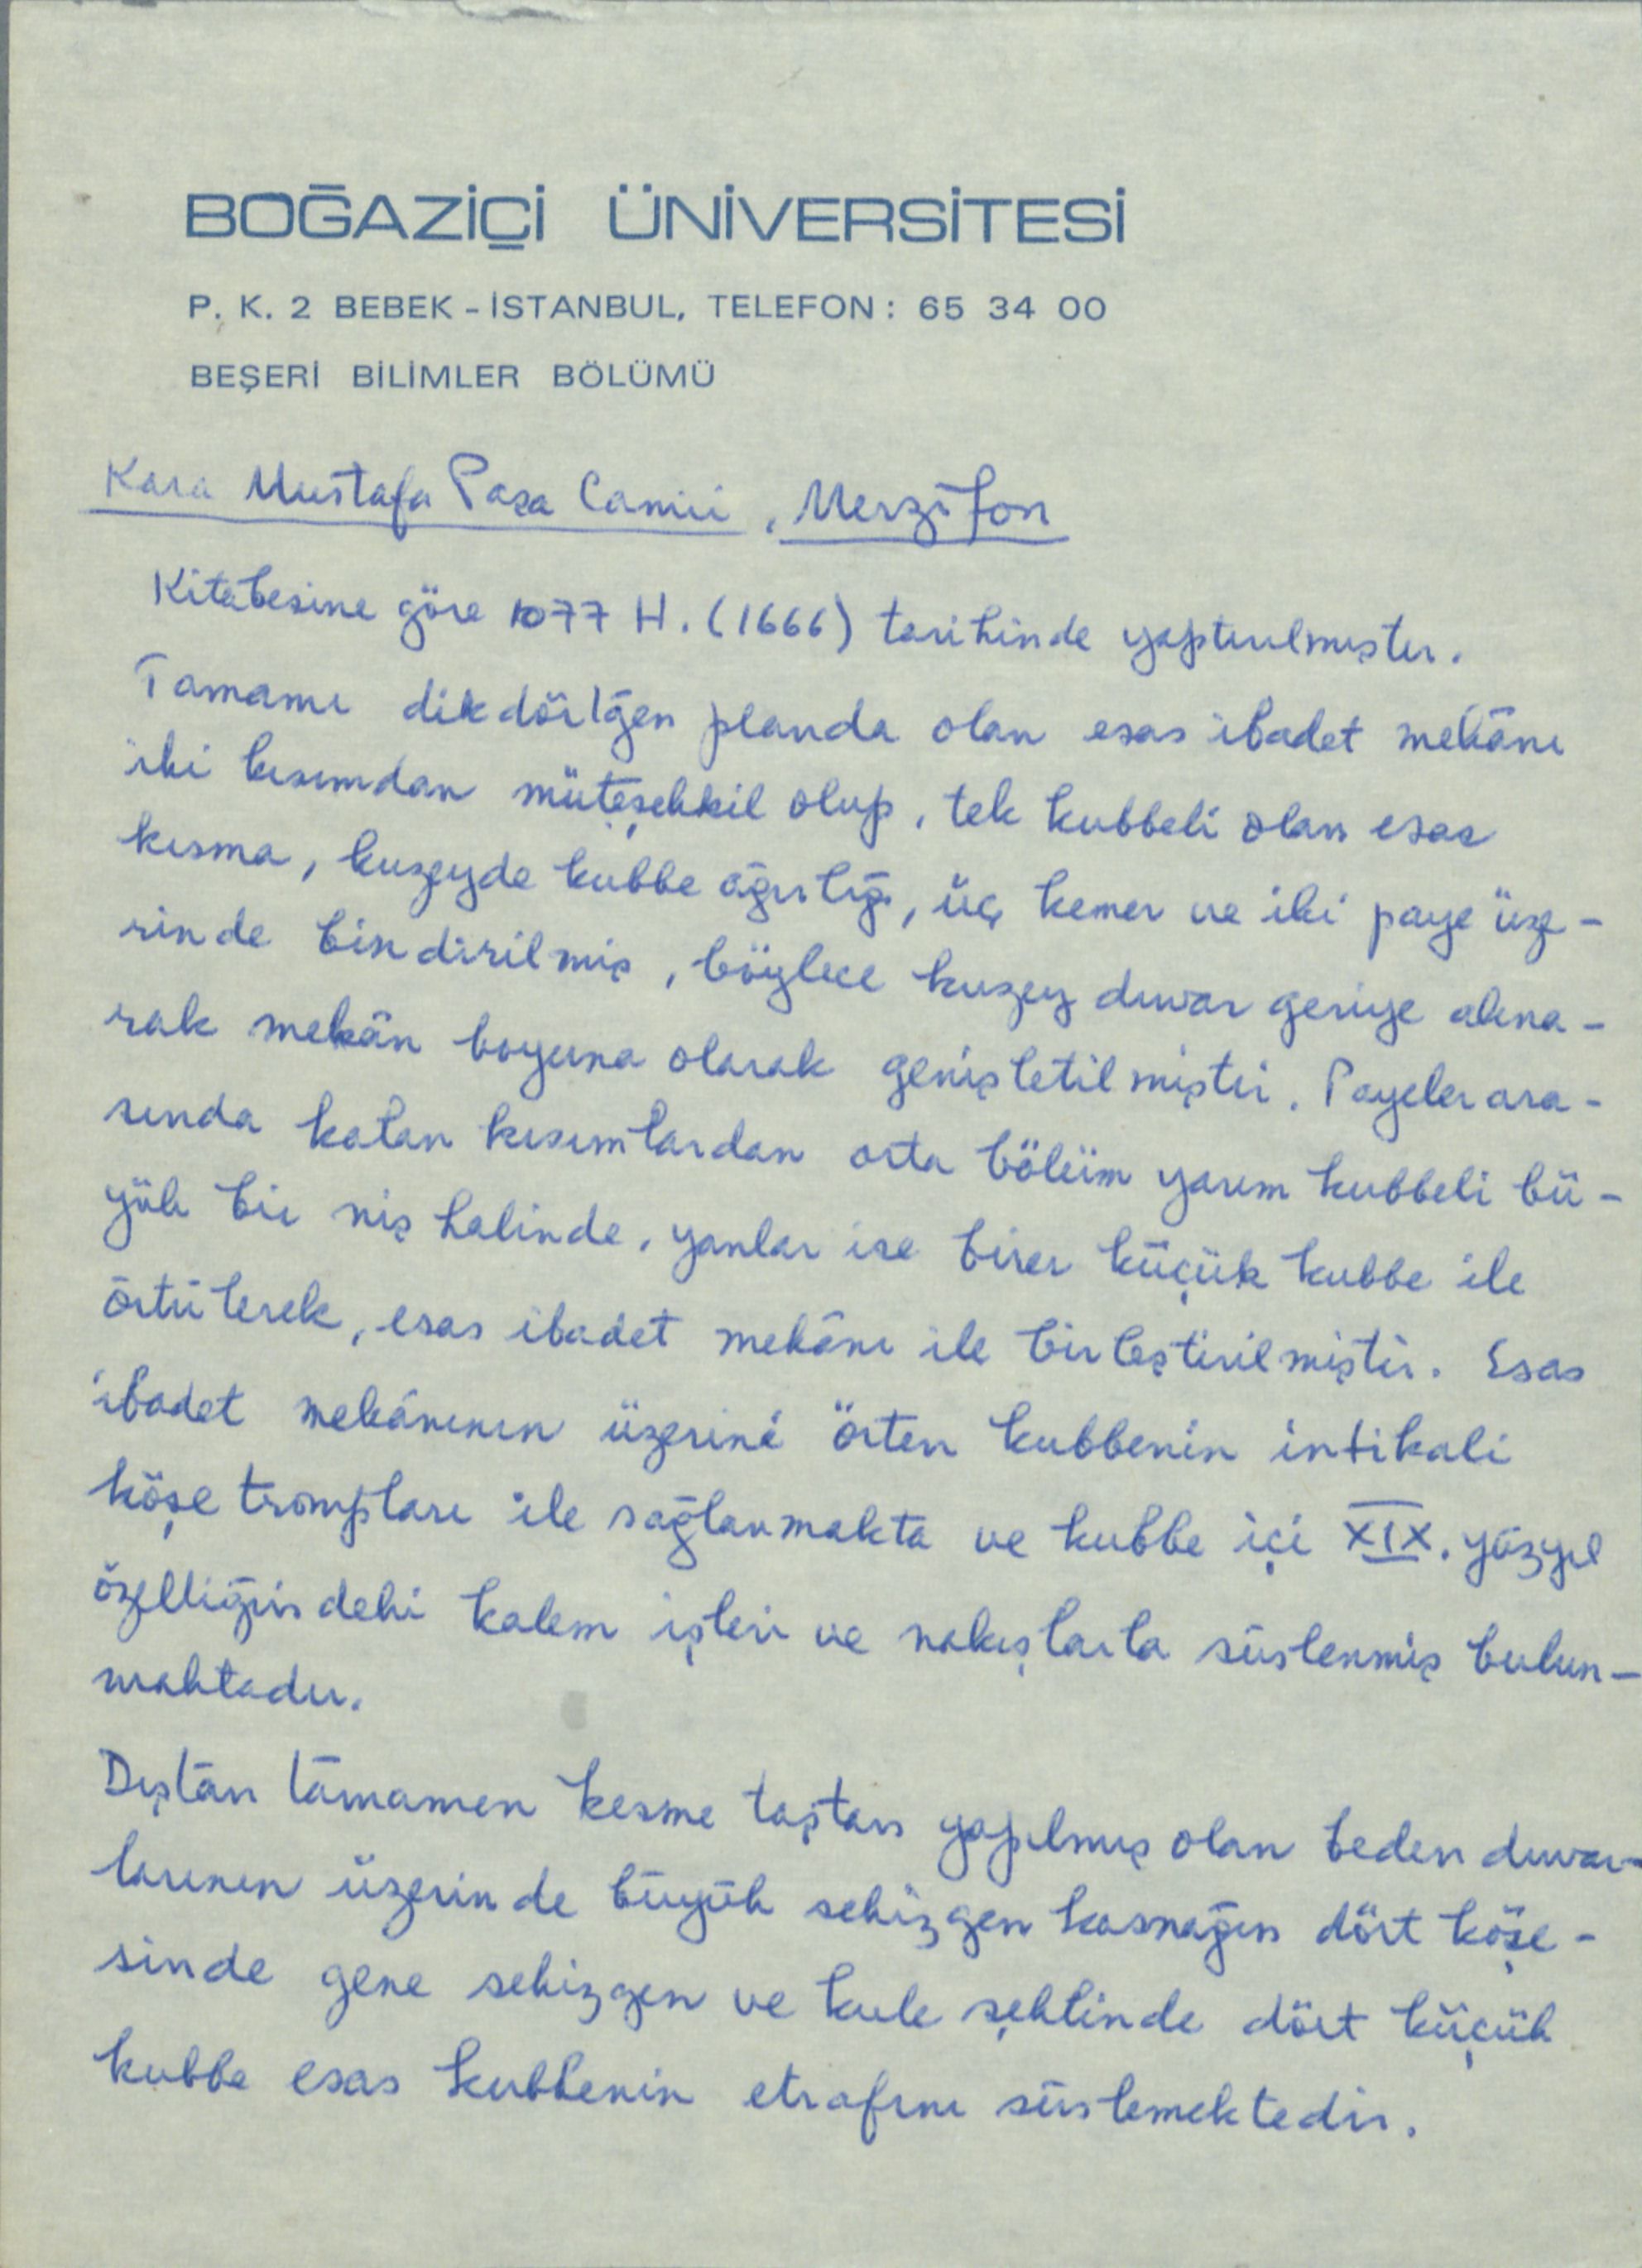 BOĞAZİÇİ ÜNİVERSİTESİ
P. K. 2 BEBEK - İSTANBUL, TELEFON : 65 34 00
BEŞERİ BİLİMLER BÖLÜMÜ
Kara Mustafa Paşa Camii, Merzifon
Kitabesine göre 1077 H. (1666) tarihinde yaptırılmıştır.
Tamamı dikdörtgen planda olan esas ibadet mekânı
iki kısımdan müteşekkil olup, tek kubbeli olan esas
kısma, kuzeyde kubbe ağırlığı, üç kemer ve iki paye üze-
rinde bindirilmiş, böylece kuzey duvar geriye alına-
rak mekân boyuna olarak genişletilmiştir. Payeler ara-
sında kalan kısımlardan orta bölüm yarım kubbeli bü-
yük bir niş halinde, yanlar ise birer küçük kubbe ile
örtülerek, esas ibadet mekânı ile birleştirilmiştir. Esas
ibadet mekânının üzerini örten kubbenin intikali
köşe trompları ile sağlanmakta ve kubbe içi XIX. yüzyıl
özelliğindeki kalem işleri ve nakışlarla süslenmiş bulun-
maktadır.
Dıştan tamamen kesme taştan yapılmış olan beden duvar-
larının üzerinde büyük sekizgen kasnağın dört köşe-
sinde gene sekizgen ve kule şeklinde dört küçük
kubbe esas kubbenin etrafını süslemektedir.